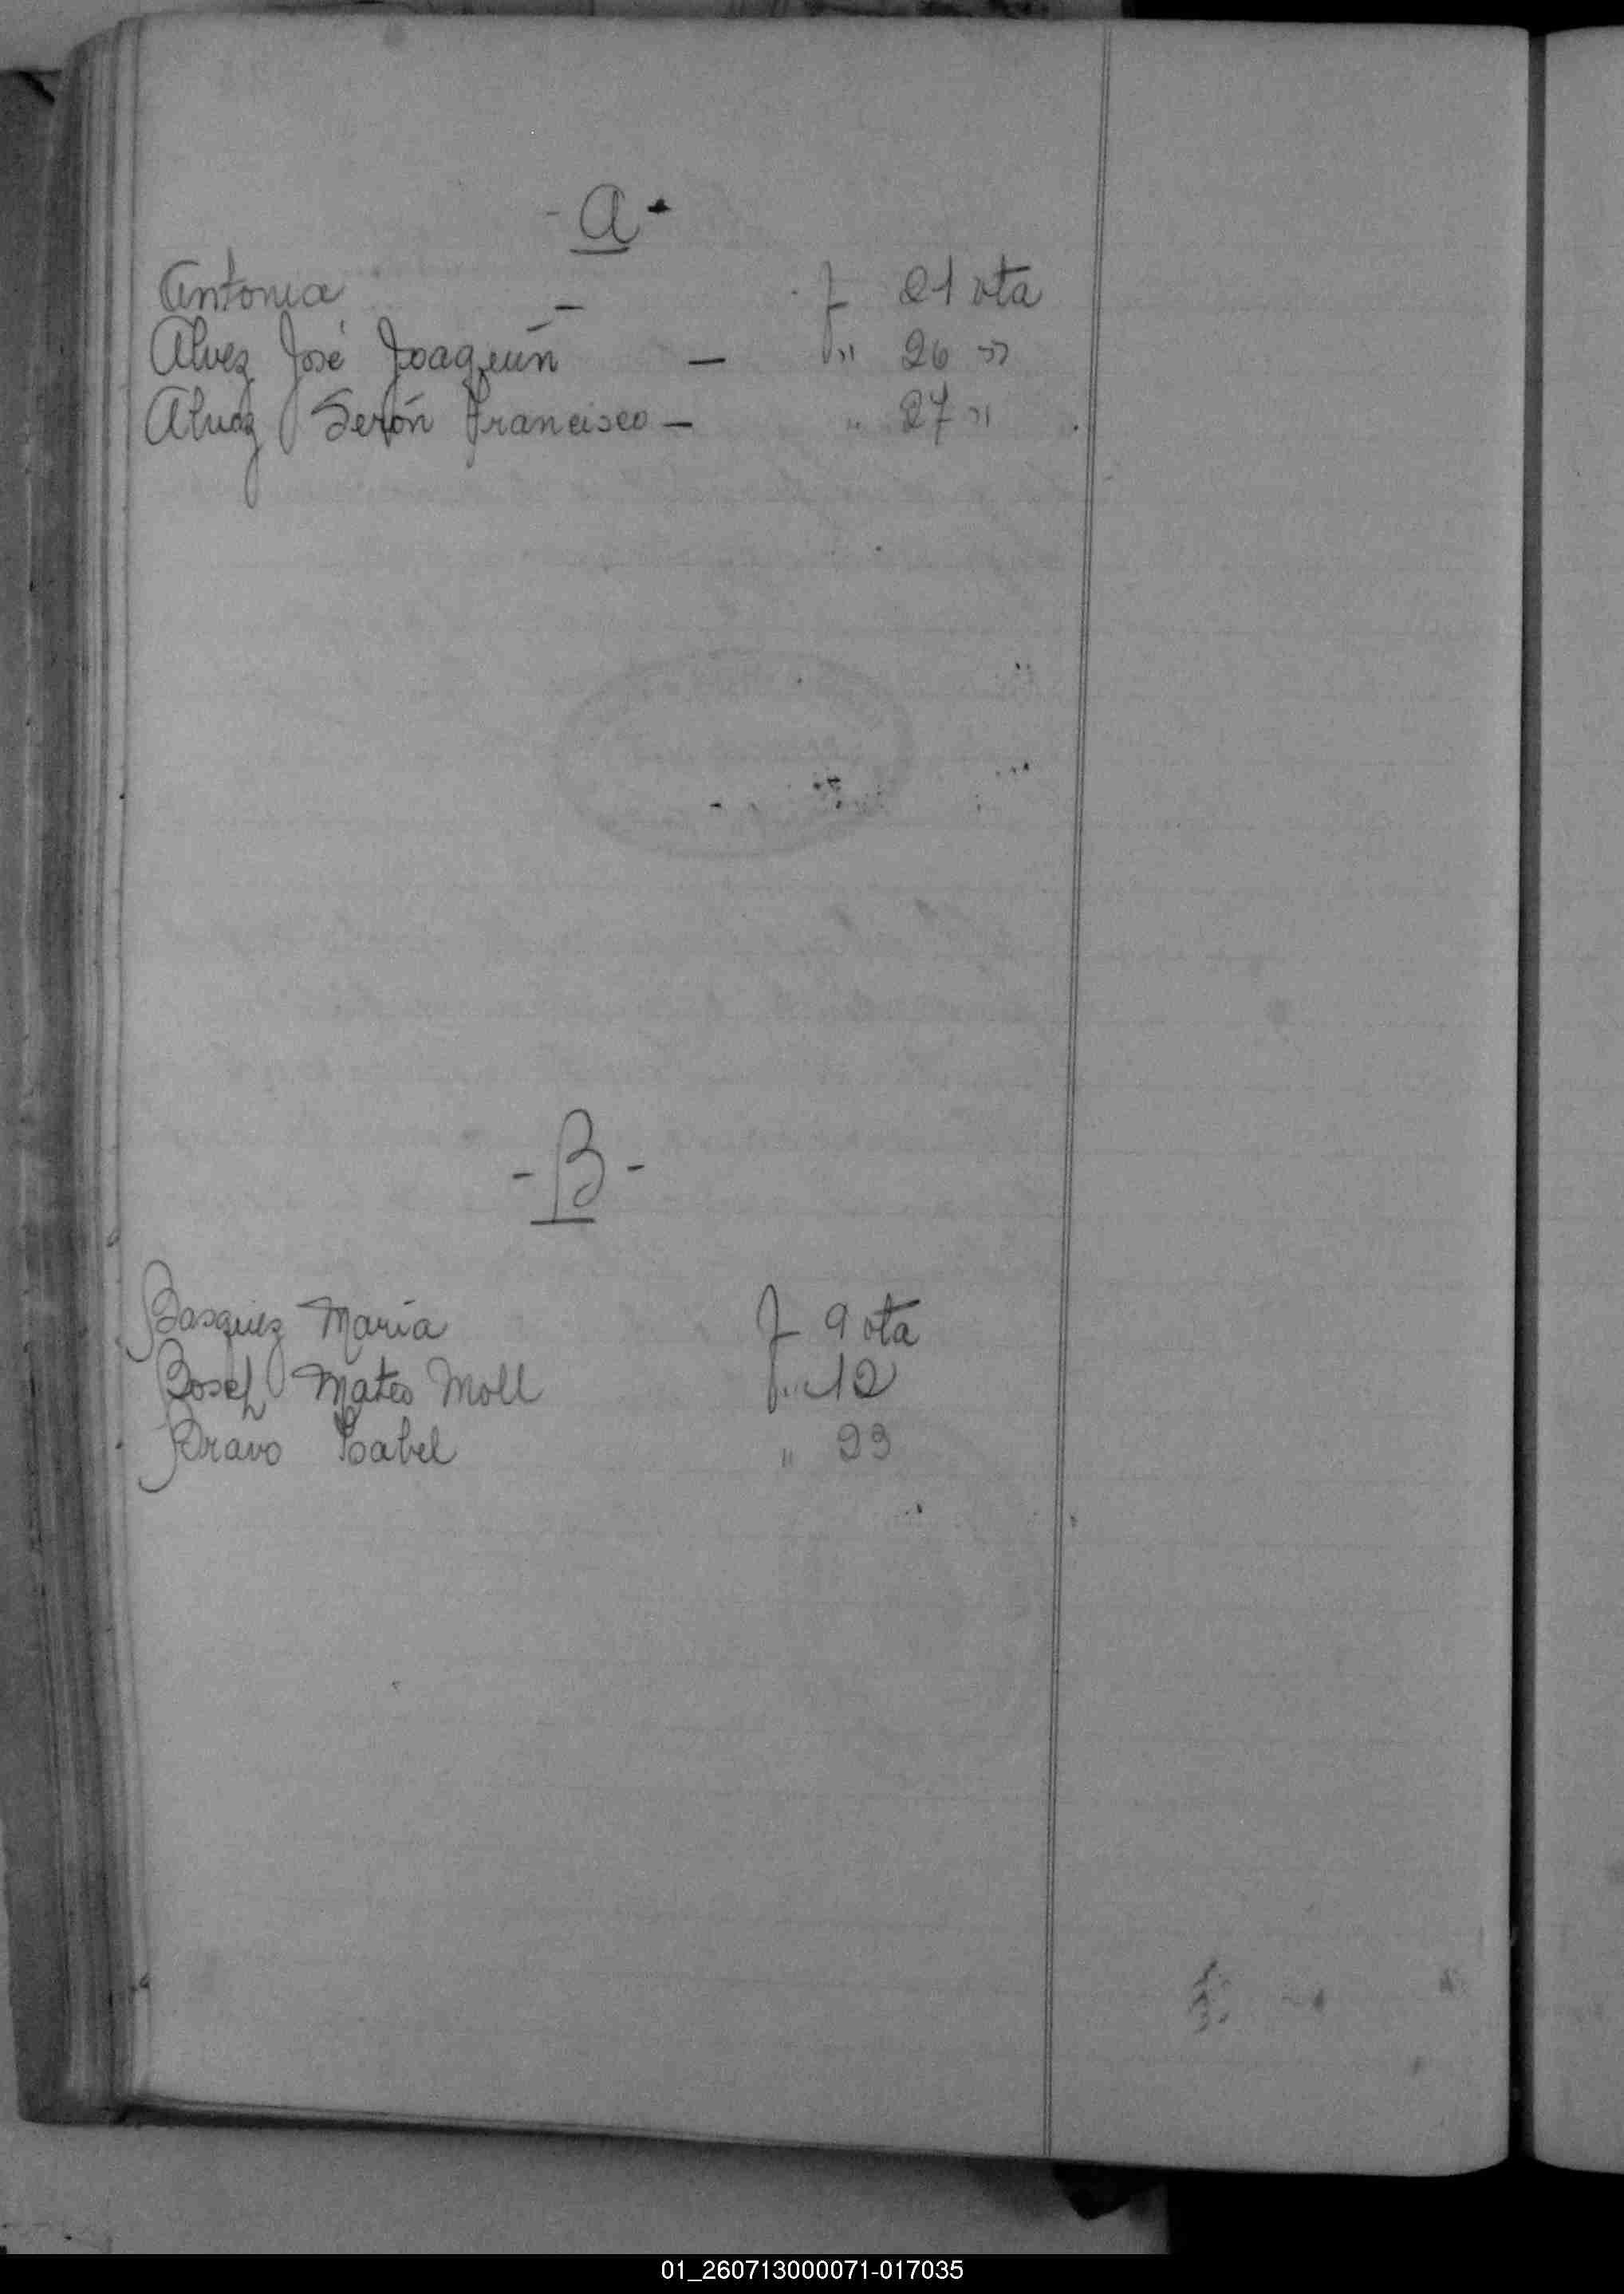 - A -
Antonia - f 21 vta
Alvez José Joaquín - f " 26 "
Alvez Serón Francisco - " 27 "
- B -
Basquez María f 9 vta
Bosch Mateo Moll f " 12
Bravo Isabel " 23
01_260713000071-017035